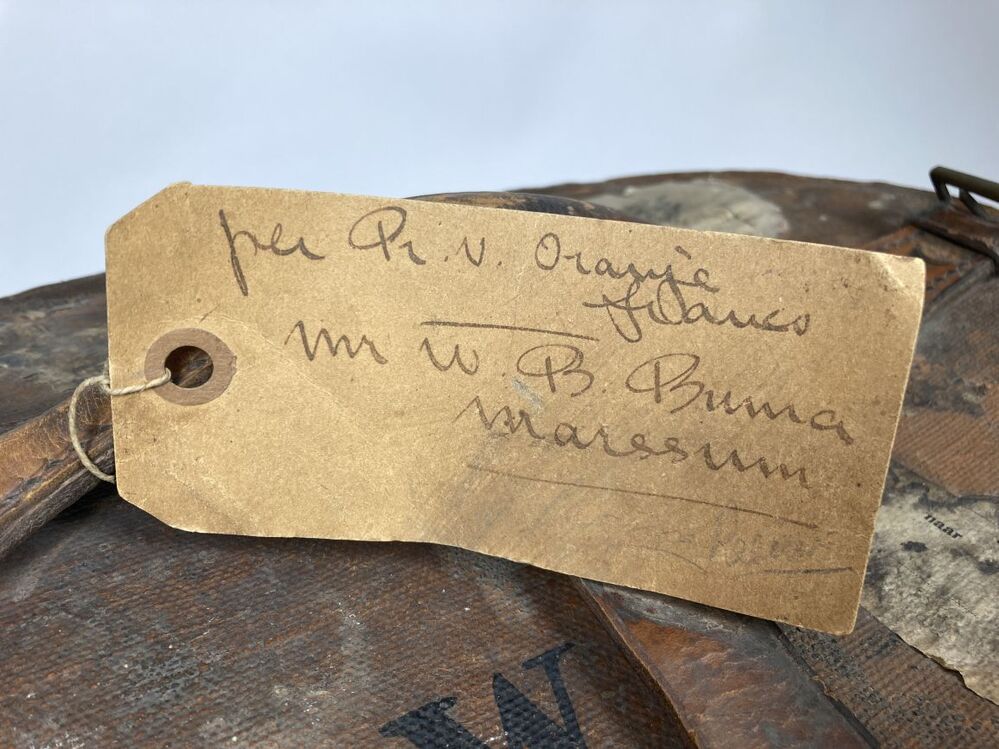 per Pr. v. Oranje
franco
Mr W. B. Buma
Marssum
naar
W